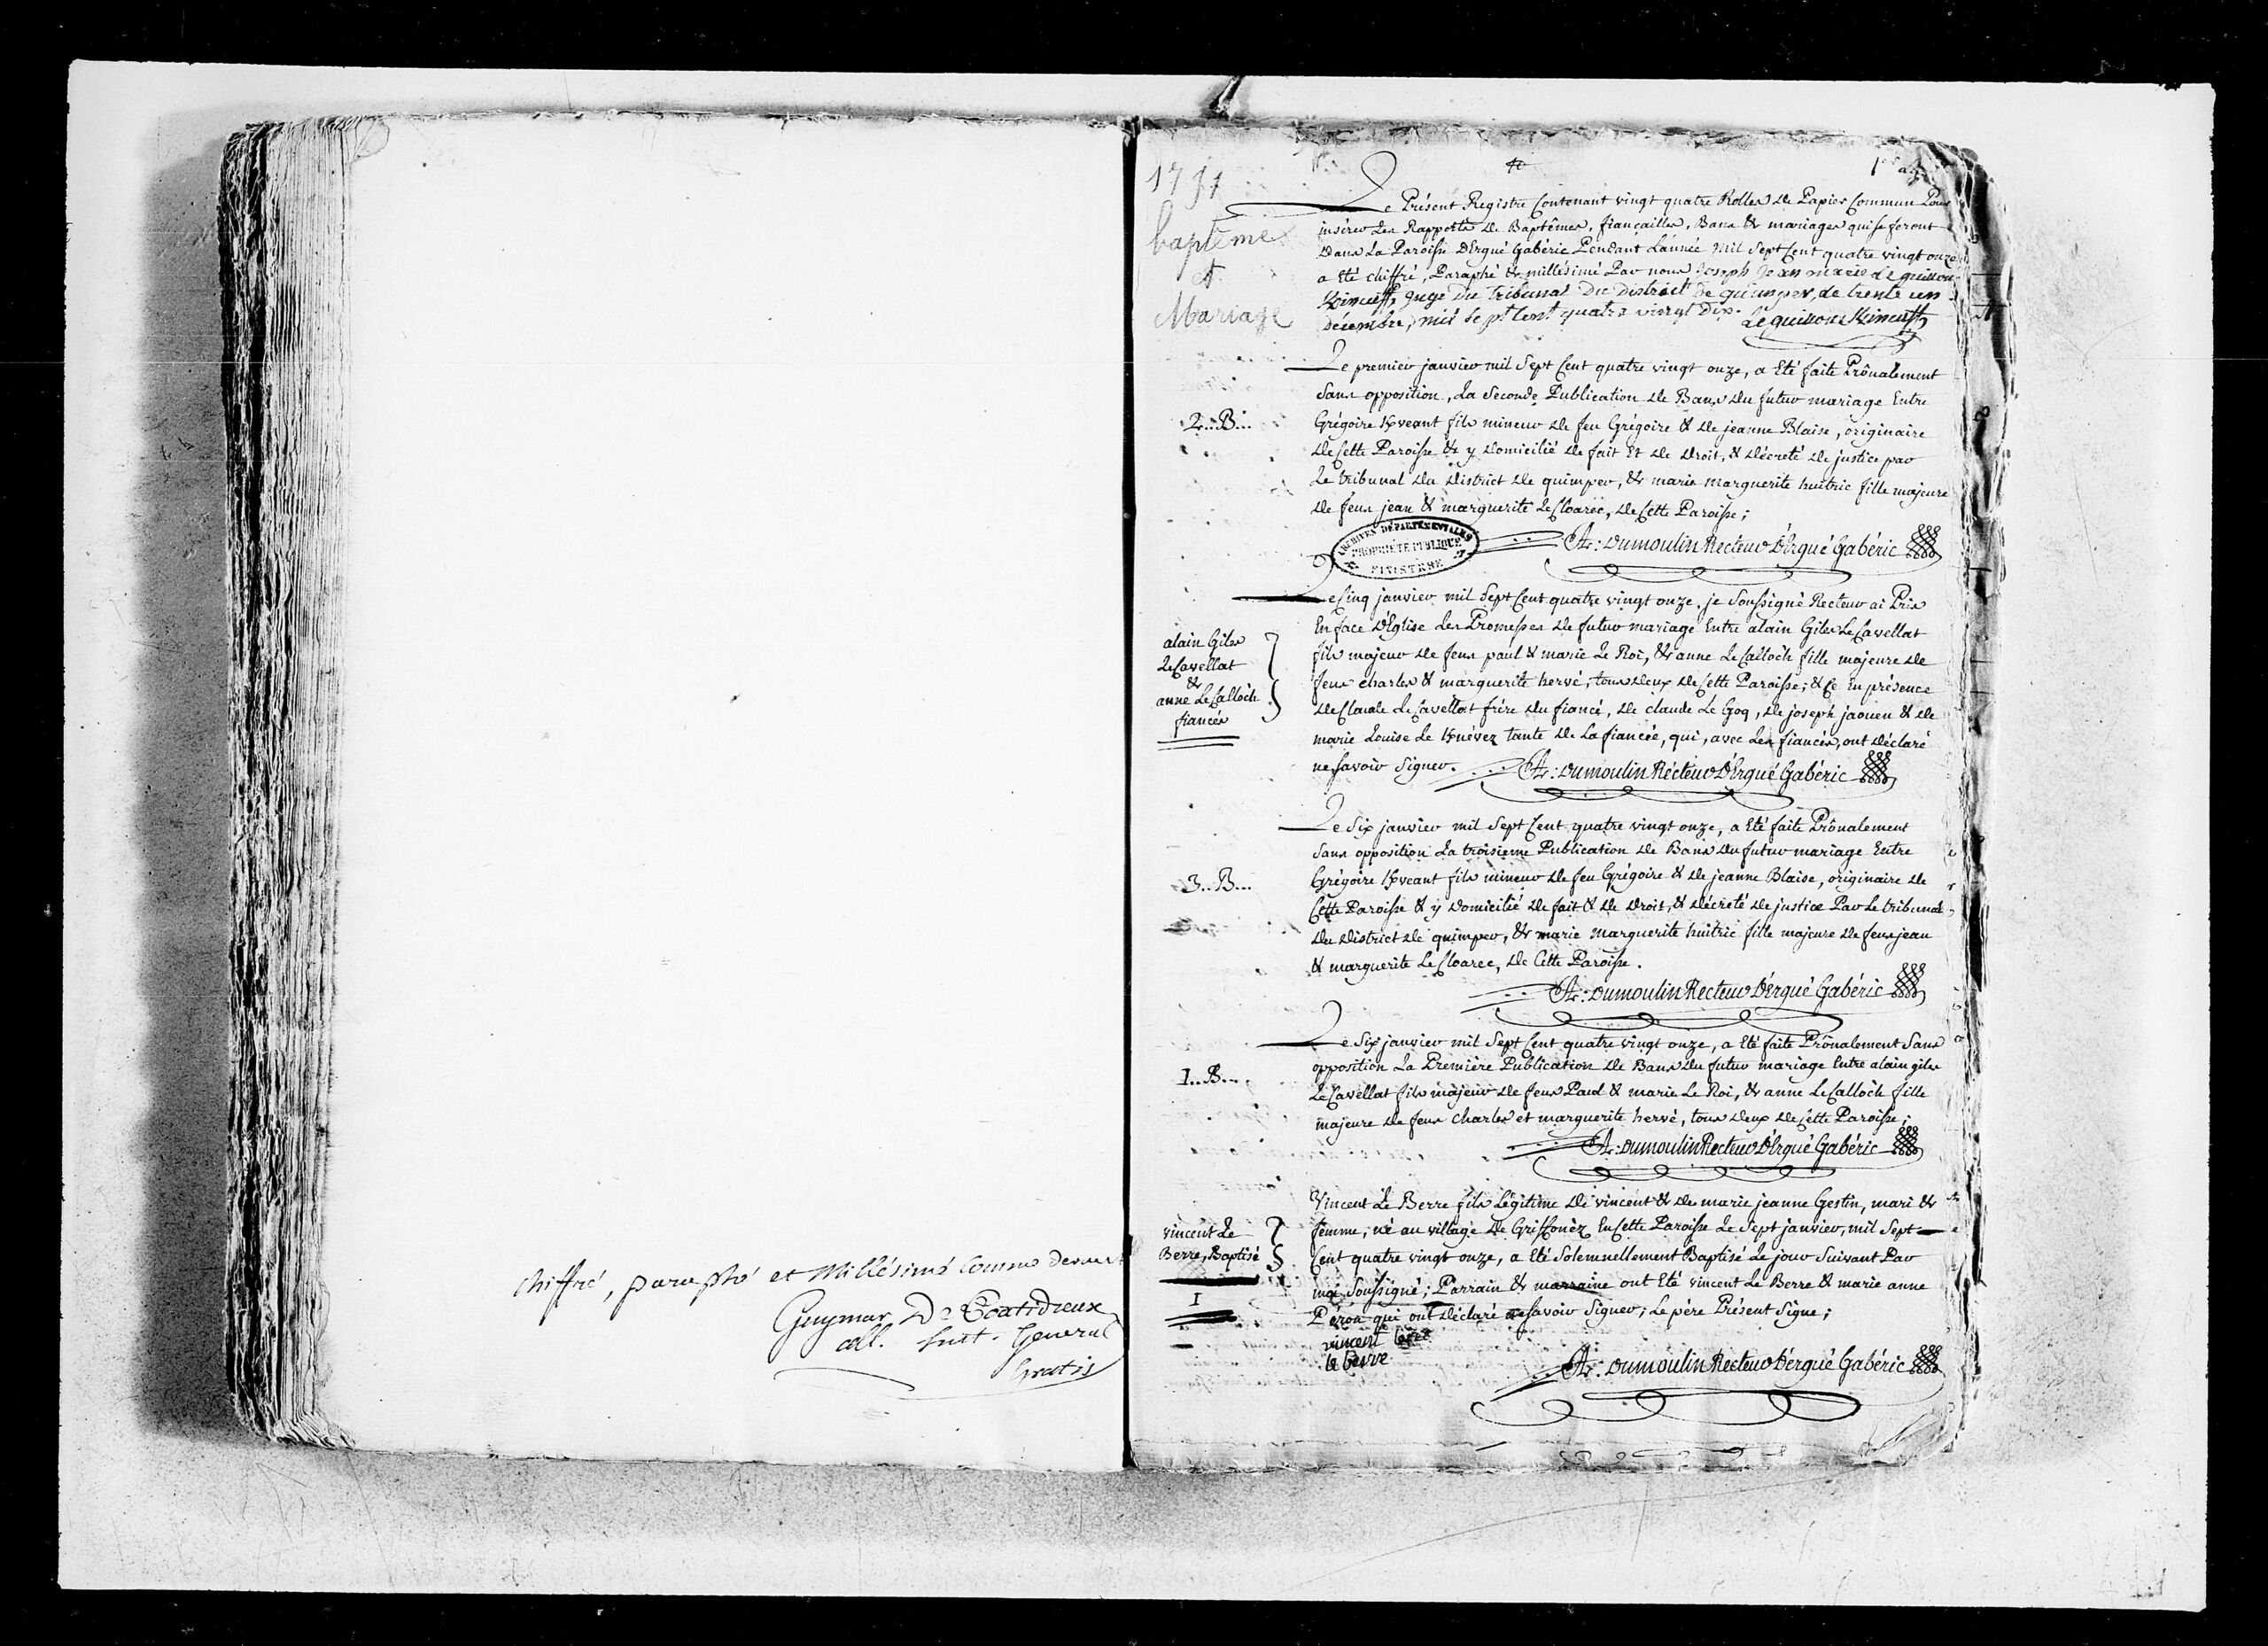 Chiffré, paraphé et Millésimé Comme dessus
Guymar De Coatidreux
all. Gratis
1791
baptême
et
Mariage
1er
Le Présent Registre Contenant vingt quatre Rolles de Papier Commun Pour
insérer Les Rapports de Baptêmes, fiançailles, Bans & mariages qui se feront
Dans La Paroisse D'Ergué Gabéric Pendant L'année Mil Sept Cent quatre vingt onze
a Eté chiffré, Paraphé & millésimé Par nous Joseph Jean marie Le guillou
Kerincuff, juge Du Tribunal Du District De quimper, le trente un
décembre, mil Sept Cent quatre vingt Dix. Le guillou Kerincuff
Le premier janvier mil Sept Cent quatre vingt onze, a Eté faite Prônalement
Sans opposition, La Seconde Publication de Bans du futur mariage Entre
2..B...
Grégoire Kerveant fils mineur de feu Grégoire & de jeanne Blaise, originaire
de Cette Paroisse & y domicilié de fait Et de Droit, & décreté de justice par
Le tribunal du District de quimper, & marie marguerite huitric fille majeure
de feus jean & marguerite Le Cloarec, de Cette Paroisse;
ARCHIVES DÉPARTEMENTALES
PROPRIÉTÉ PUBLIQUE
FINISTERE
A: Dumoulin Recteur D'Ergué Gabéric
Le Cinq janvier mil Sept Cent quatre vingt onze, je Soussigné Recteur ai Pris
En face D'Eglise Les Promesses de futur mariage Entre alain Giles Le Cavellat
alain Giles
Le Cavellat
&
anne Le Calloch
fiancés
fils majeur de feus paul & marie Le Roi, & anne Le Calloch fille majeure de
feus charles & marguerite hervé, tous deux de Cette Paroisse; & Ce En présence
de Claude Le Cavellat frère du fiancé, de claude Le Goq, de joseph jaouen & de
marie Louise Le Kernévez tante de La fiancée, qui, avec Les fiancés, ont déclaré
ne savoir Signer. A: Dumoulin Récteur D'Ergué Gabéric
Le Six janvier mil Sept Cent quatre vingt onze, a Eté faite Prônalement
Sans opposition La troisieme Publication de Bans du futur mariage Entre
3..B...
Grégoire Kerveant fils mineur de feu Grégoire & de jeanne Blaise, originaire de
Cette Paroisse & y domicilié de fait & de Droit, & décreté de justice Par Le tribunal
du District de quimper, & marie marguerite huitric fille majeure de feus jean
& marguerite Le Cloarec, de Cette Paroisse.
A: Dumoulin Recteur D'Ergué Gabéric
Le Six janvier mil Sept Cent quatre vingt onze, a Eté faite Prônalement Sans
1..B...
opposition La Première Publication de Bans du futur mariage Entre alain giles
Le Cavellat fils majeur de feus Paul & marie Le Roi, & anne Le Calloch fille
majeure de feus Charles et marguerite hervé, tous deux de Cette Paroisse;
A: Dumoulin Recteur D'Ergué Gabéric
Vincent Le Berre fils Légitime de vincent & de marie jeanne Gestin, mari &
vincent Le
Berre, Baptisé
1
femme, né au village De Griffonèz En Cette Paroisse Le Sept janvier, mil Sept
Cent quatre vingt onze, a Eté Solemnellement Baptisé Le jour Suivant Par
moi Soussigné; Parrain & marraine ont Eté vincent Le Berre & marie anne
Péron qui ont déclaré ne savoir Signer; Le père Présent Signe;
vincent
le berre
A: Dumoulin Recteur D'érgué Gabéric